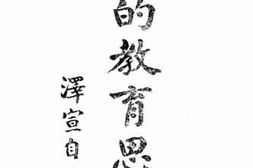 的教育思
澤宣自